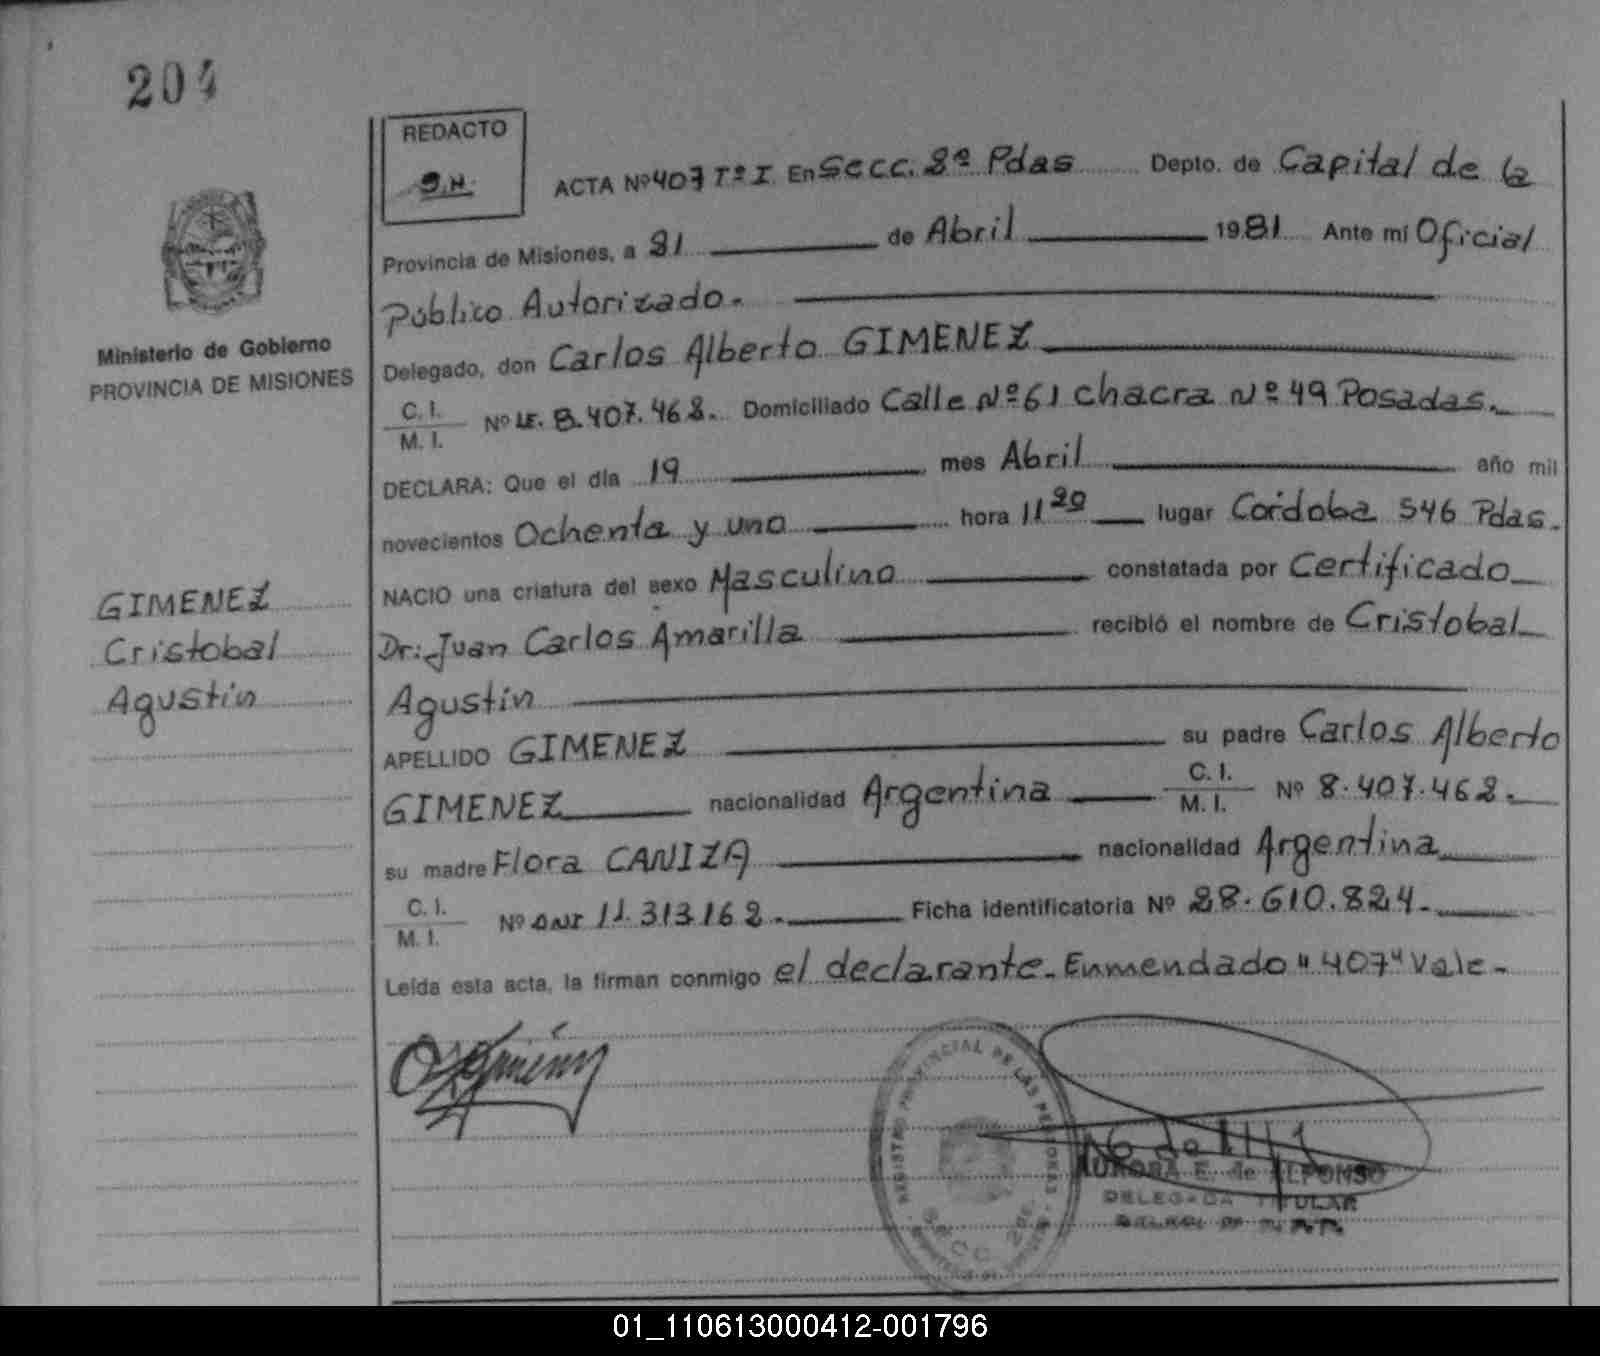 204
REDACTO
ACTA Nº 407 Tº I En Secc. 2ª Pdas Depto. de Capital de la
Provincia de Misiones, a 21 de Abril 1981 Ante mí Oficial
Público Autorizado.
Ministerio de Gobierno
PROVINCIA DE MISIONES
Delegado, don Carlos Alberto GIMENEZ
C. I.
M. I.
Nº LE. 8.407.462. Domiciliado Calle Nº 61 chacra Nº 49 Posadas.
DECLARA: Que el día 19 mes Abril año mil
novecientos Ochenta y uno hora 11 20 lugar Córdoba 546 Pdas.
GIMENEZ
Cristobal
Agustín
NACIO una criatura del sexo Masculino constatada por Certificado
Dr: Juan Carlos Amarilla recibió el nombre de Cristobal
Agustín
APELLIDO GIMENEZ su padre Carlos Alberto
GIMENEZ nacionalidad Argentina C. I. M. I. Nº 8.407.462.
su madre Flora CANIZA nacionalidad Argentina
C. I.
M. I.
Nº DNI 11.313.162. Ficha identificatoria Nº 28.610.824.
Leída esta acta, la firman conmigo el declarante. Enmendado "407" Vale.
REGISTRO PROVINCIAL DE LAS PERSONAS
SECC. 2DE.
AURORA E. de ALFONSO
DELEGADA TITULAR
01_110613000412-001796